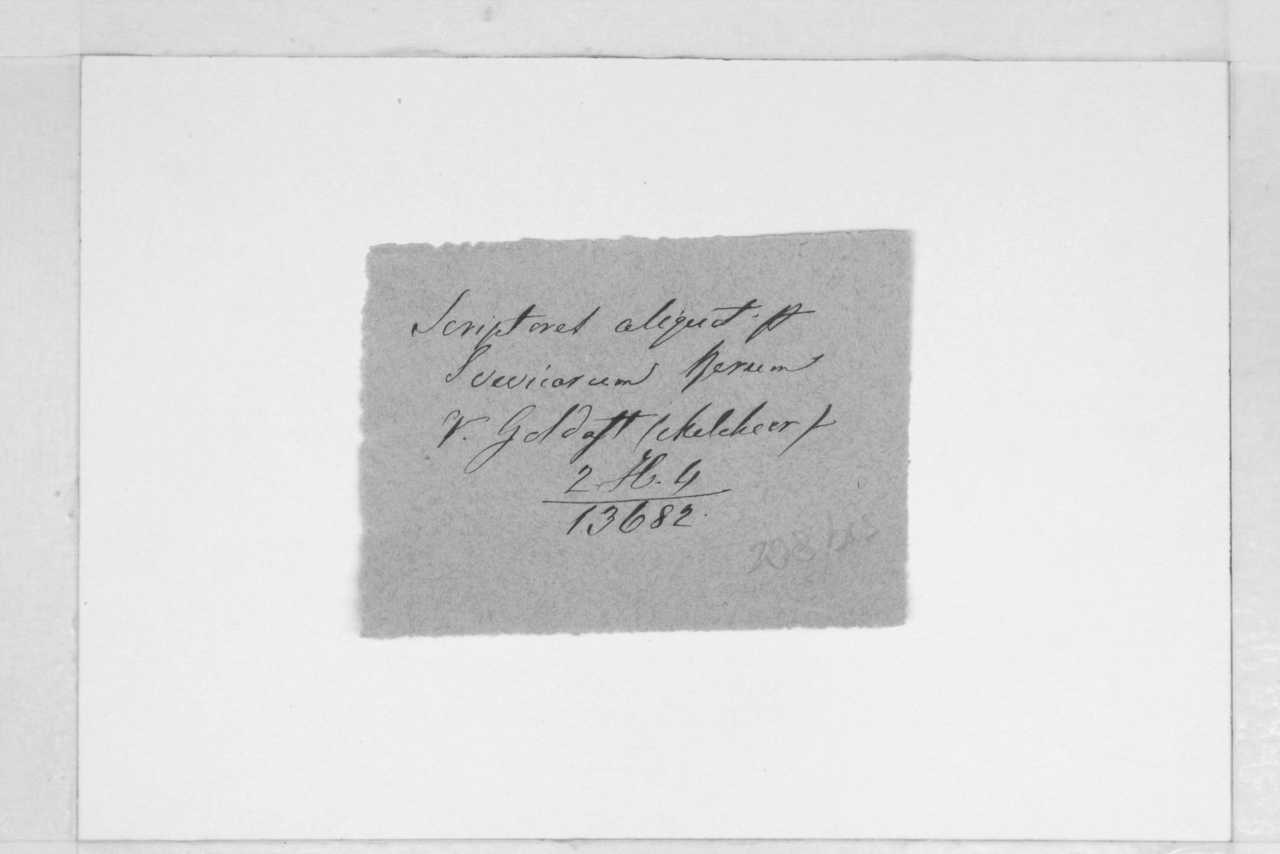 Scriptores aliquot
Suevicarum Rerum
V. Goldast (Melcheor)
2 H. 4
13682.
208 bis